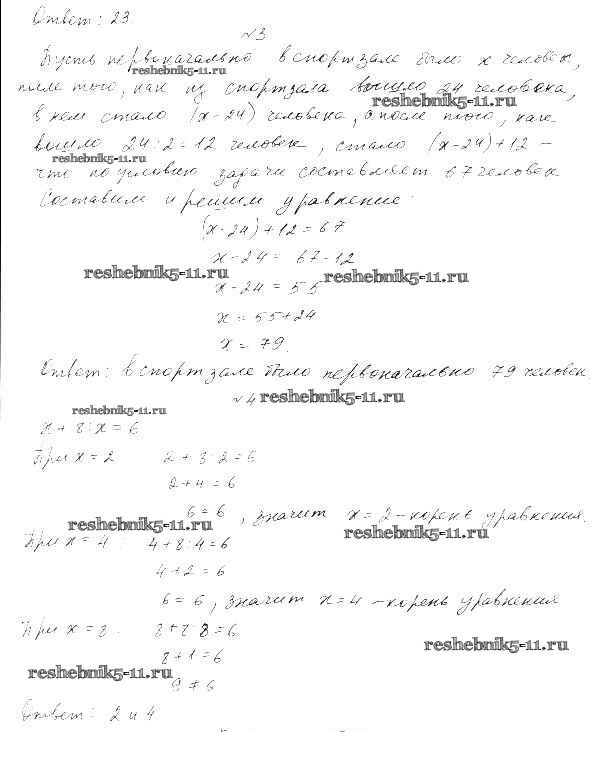 Ответ: 23
№3
Пусть первоначально в спортзале было x человек,
reshebnik5-11.ru
после того, как из спортзала вышло 24 человека,
reshebnik5-11.ru
в нем стало (x-24) человека, а после того, как
вышло 24:2=12 человек, стало (x-24)+12 -
reshebnik5-11.ru
что по условию задачи составляет 67 человек
Составим и решим уравнение:
(x-24)+12=67
x-24= 67-12
reshebnik5-11.ru reshebnik5-11.ru
x-24=55
x=55+24
x=79.
Ответ: в спортзале было первоначально 79 человек.
№4 reshebnik5-11.ru
reshebnik5-11.ru
x+8:x=6
При x=2 2+8:2=6
2+4=6
6=6, значит x=2-корень уравнения.
reshebnik5-11.ru reshebnik5-11.ru
При x=4. 4+8:4=6
4+2=6
6=6, значит x=4-корень уравнения
При x=8. 8+8:8=6
reshebnik5-11.ru
8+1=6
reshebnik5-11.ru
9≠6
Ответ: 2 и 4